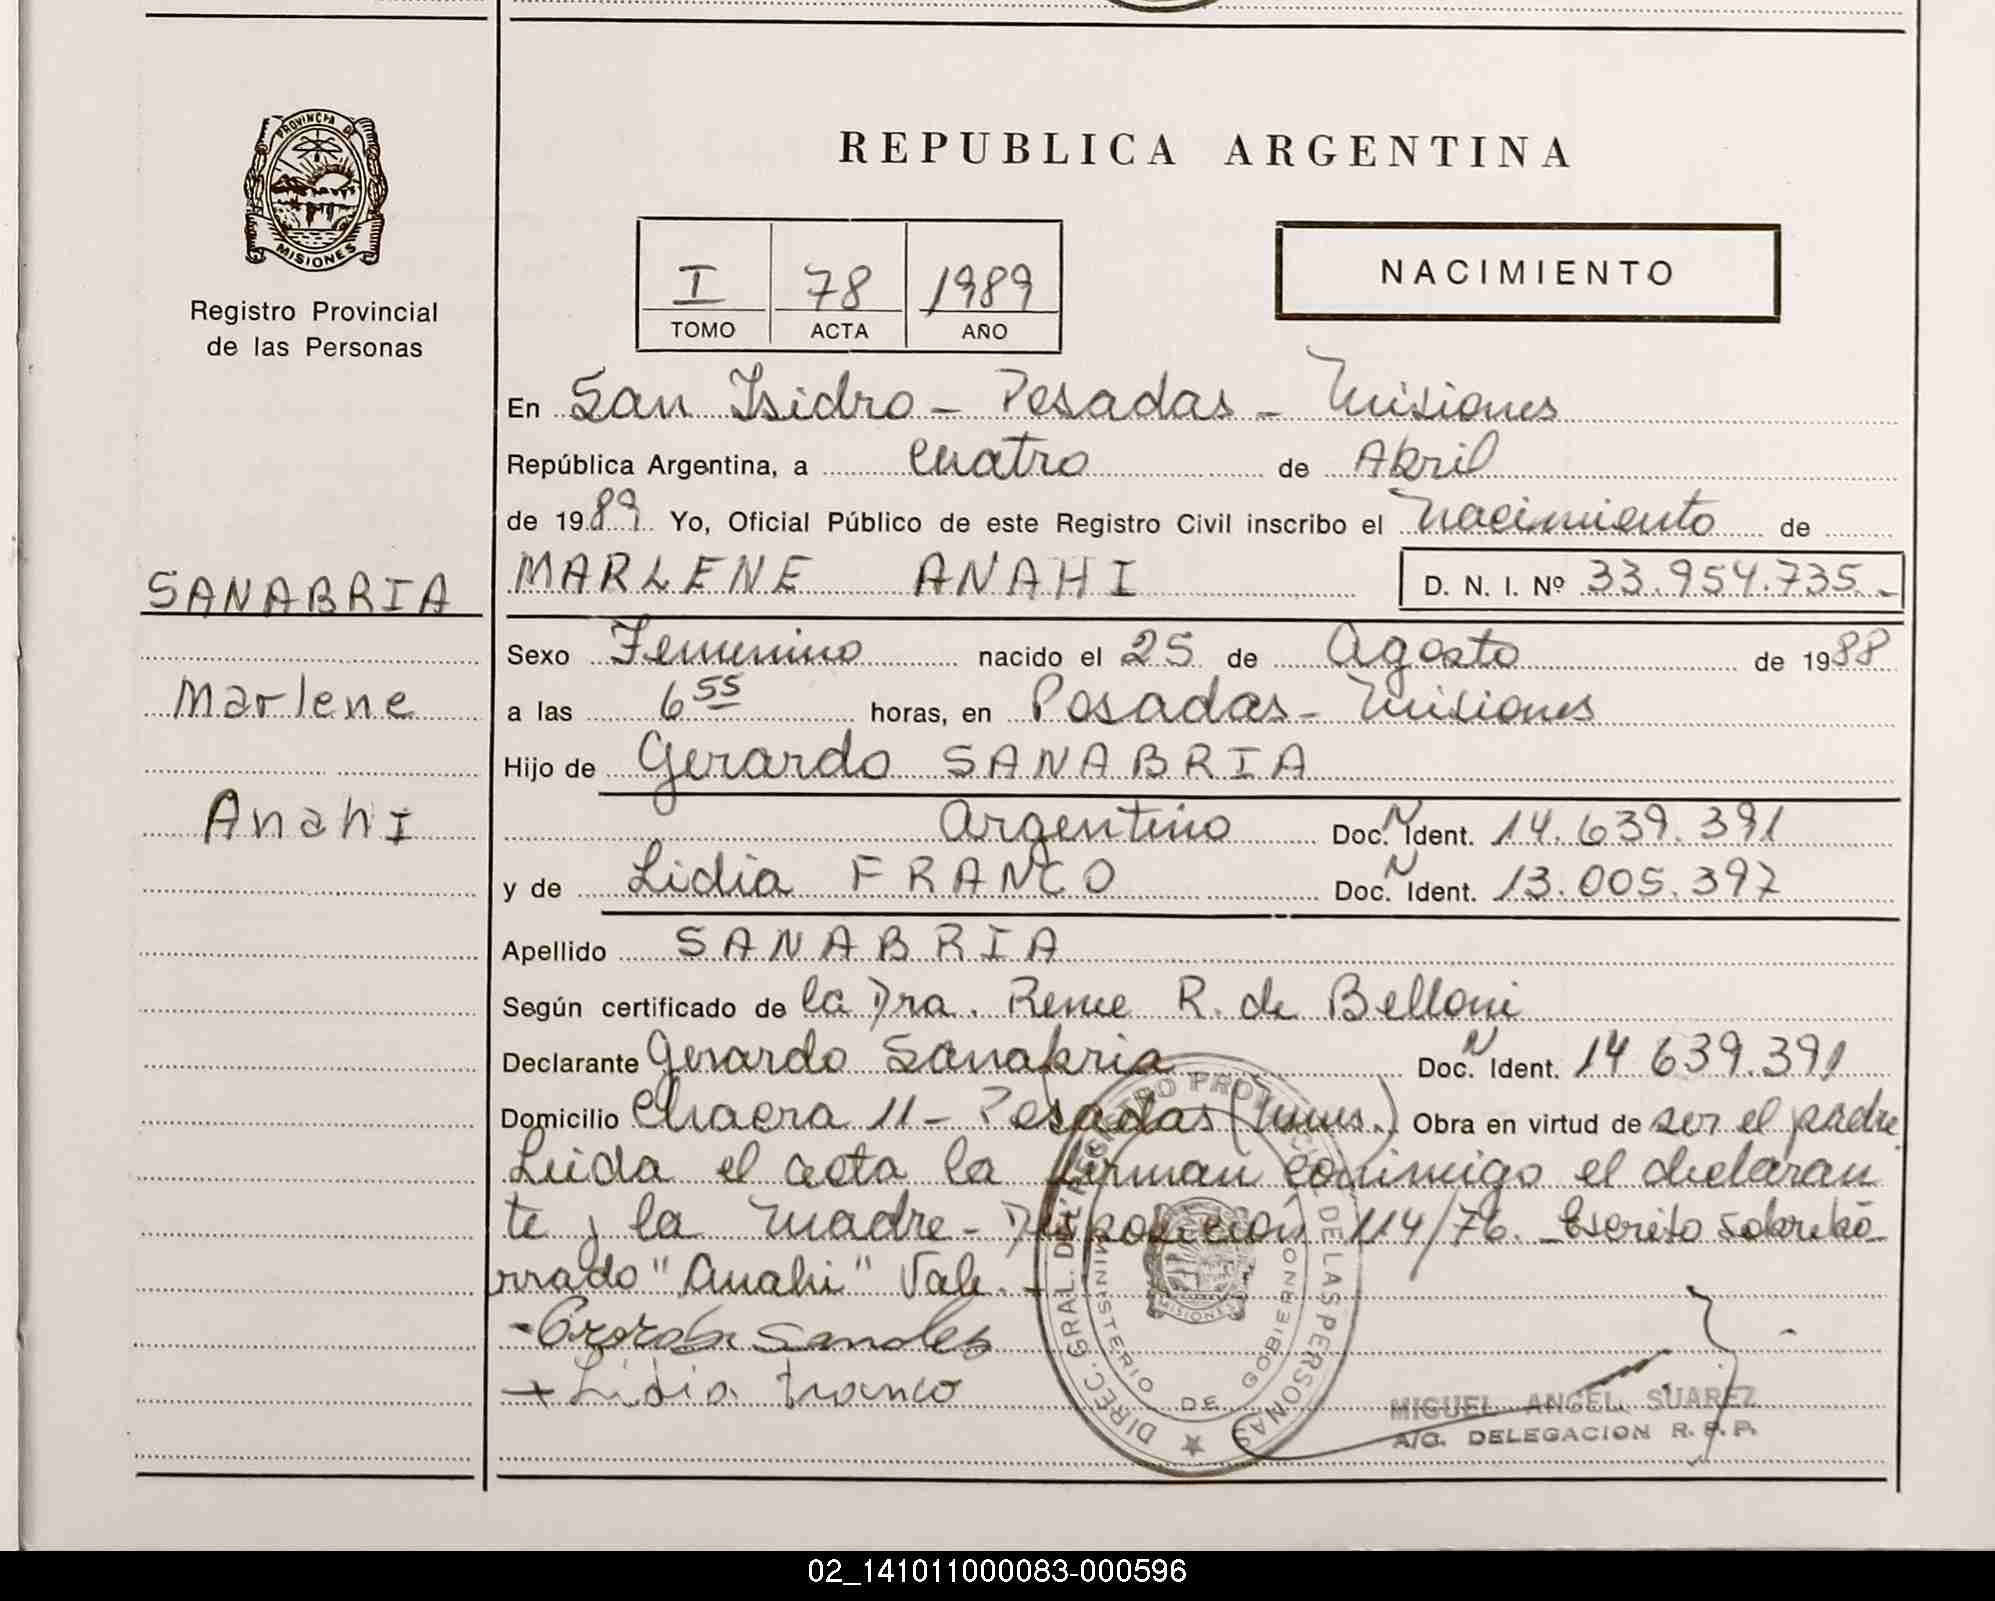 PROVINCIA DE
MISIONES
Registro Provincial
de las Personas
SANABRIA
Marlene
Anahi
REPUBLICA ARGENTINA
I 78 1989
TOMO ACTA AÑO
NACIMIENTO
En San Isidro - Posadas - Misiones
República Argentina, a cuatro de Abril
de 1989 Yo, Oficial Público de este Registro Civil inscribo el Nacimiento de
MARLENE ANAHI D. N. I. Nº 33.954.735.-
Sexo Femenino nacido el 25 de Agosto de 1988
a las 6 55 horas, en Posadas - Misiones
Hijo de Gerardo SANABRIA
Argentino Doc. N Ident. 14.639.391
y de Lidia FRANCO Doc. N Ident. 13.005.397
Apellido SANABRIA
Según certificado de la Dra. Rene R. de Belloni
Declarante Gerardo Sanabria Doc. N Ident. 14 639.391
Domicilio Chacra 11 - Posadas (Mnes.) Obra en virtud de ser el padre
Leida el acta la firman conmigo el declaran
te y la madre - Disposición 114/76. Escrito sobre
rrado "Anahi" Vale. -
+ Lidia Franco
DIREC. GRAL. DEL REGISTRO PROVINCIAL DE LAS PERSONAS
MINISTERIO DE GOBIERNO
MISIONES
MIGUEL ANGEL SUAREZ
A/C. DELEGACION R. P. P.
02_141011000083-000596